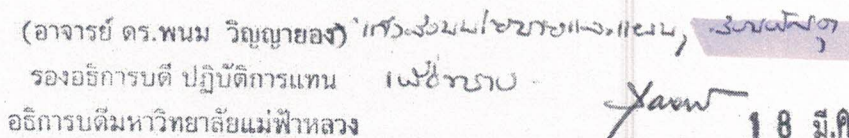 (อาจารย์ ดร.พนม วิญญายอง) แจ้งส่วนนโยบายและแผน,
รองอธิการบดี ปฏิบัติการแทน เพื่อทราบ
อธิการบดีมหาวิทยาลัยแม่ฟ้าหลวง 18 มี.ค